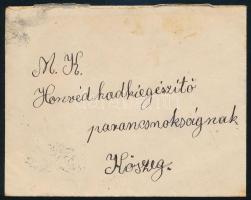 M. K.
Honvéd hadkiegészítő
parancsnokságnak
Kőszeg.